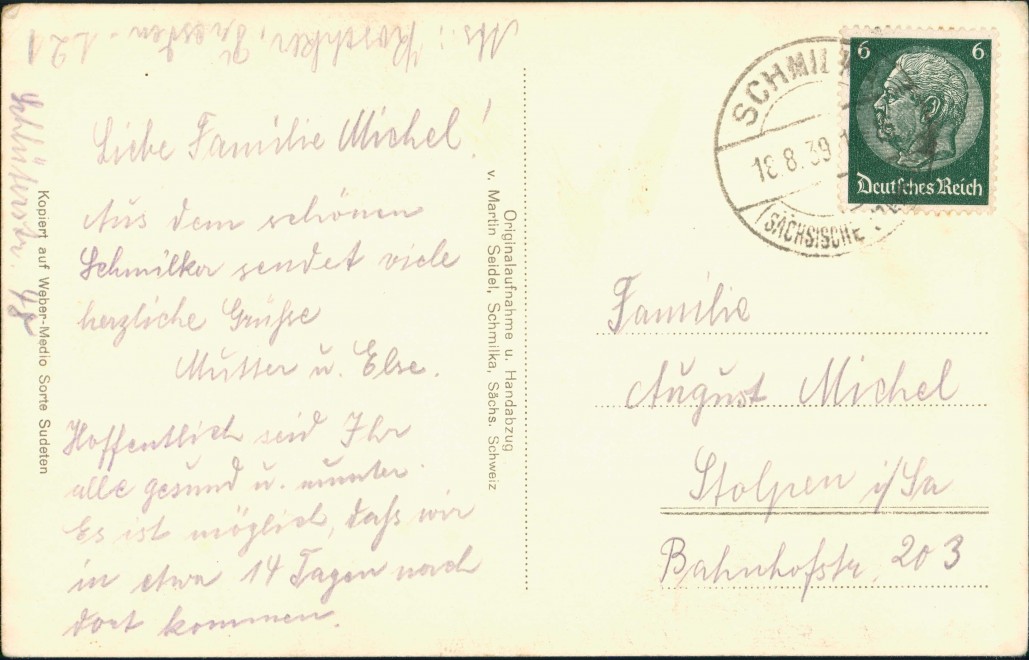 Liebe Familie Michel!
Aus dem schönen
Schmilka sendet viele
herzliche Grüße
Mutter u. Else.
Hoffentlich seid Ihr
alle gesund u. munter.
Es ist möglich, daß wir
in etwa 14 Tagen nach
dort kommen.
Dresden-A.21
Schlüterstr. 48
Kopiert auf Weber-Medio Sorte Sudeten
Originalaufnahme u. Handabzug
v. Martin Seidel, Schmilka, Sächs. Schweiz
SCHMILKA
18.8.39
(SÄCHSISCHE
6 6
Deutsches Reich
Familie
August Michel
Stolpen i/Sa
Bahnhofstr. 203